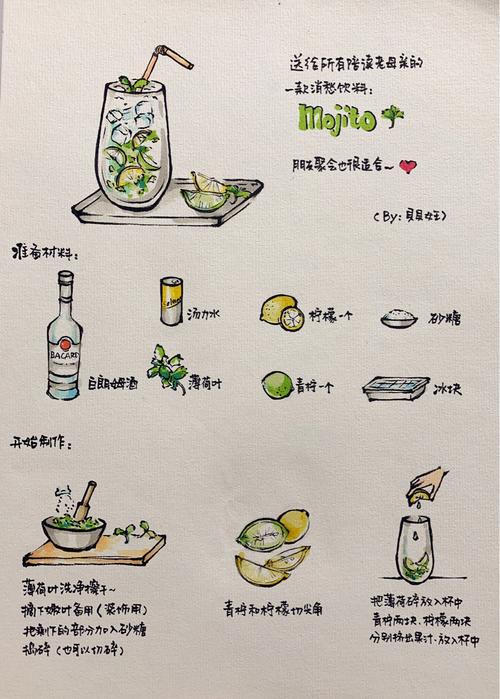 送给所有陪读老母亲的
一款消愁饮料：
Mojito
朋友聚会也很适合~
（By：贝贝女王）
准备材料：
BACARDI
白朗姆酒
汤力水
薄荷叶
柠檬一个
青柠一个
砂糖
冰块
开始制作：
薄荷叶洗净擦干~
摘下嫩叶备用（装饰用）
把剩下的部分加入砂糖
捣碎（也可以切碎）
青柠和柠檬切尖角
把薄荷碎放入杯中
青柠两块、柠檬两块
分别挤出果汁、放入杯中